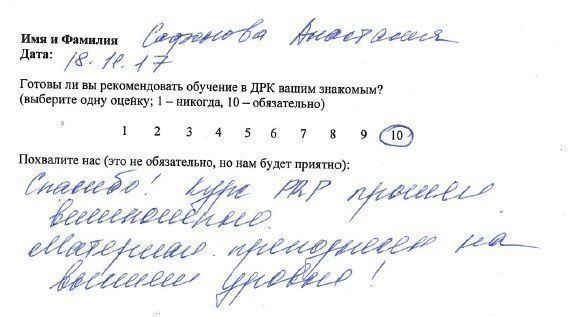 Имя и Фамилия Сафонова Анастасия
Дата: 18.11.17
Готовы ли вы рекомендовать обучение в ДРК вашим знакомым?
(выберите одну оценку; 1 – никогда, 10 – обязательно)
1 2 3 4 5 6 7 8 9 10
Похвалите нас (это не обязательно, но нам будет приятно):
Спасибо! Курс PRP прошел
великолепно.
Материал преподнесен на
высшем уровне!